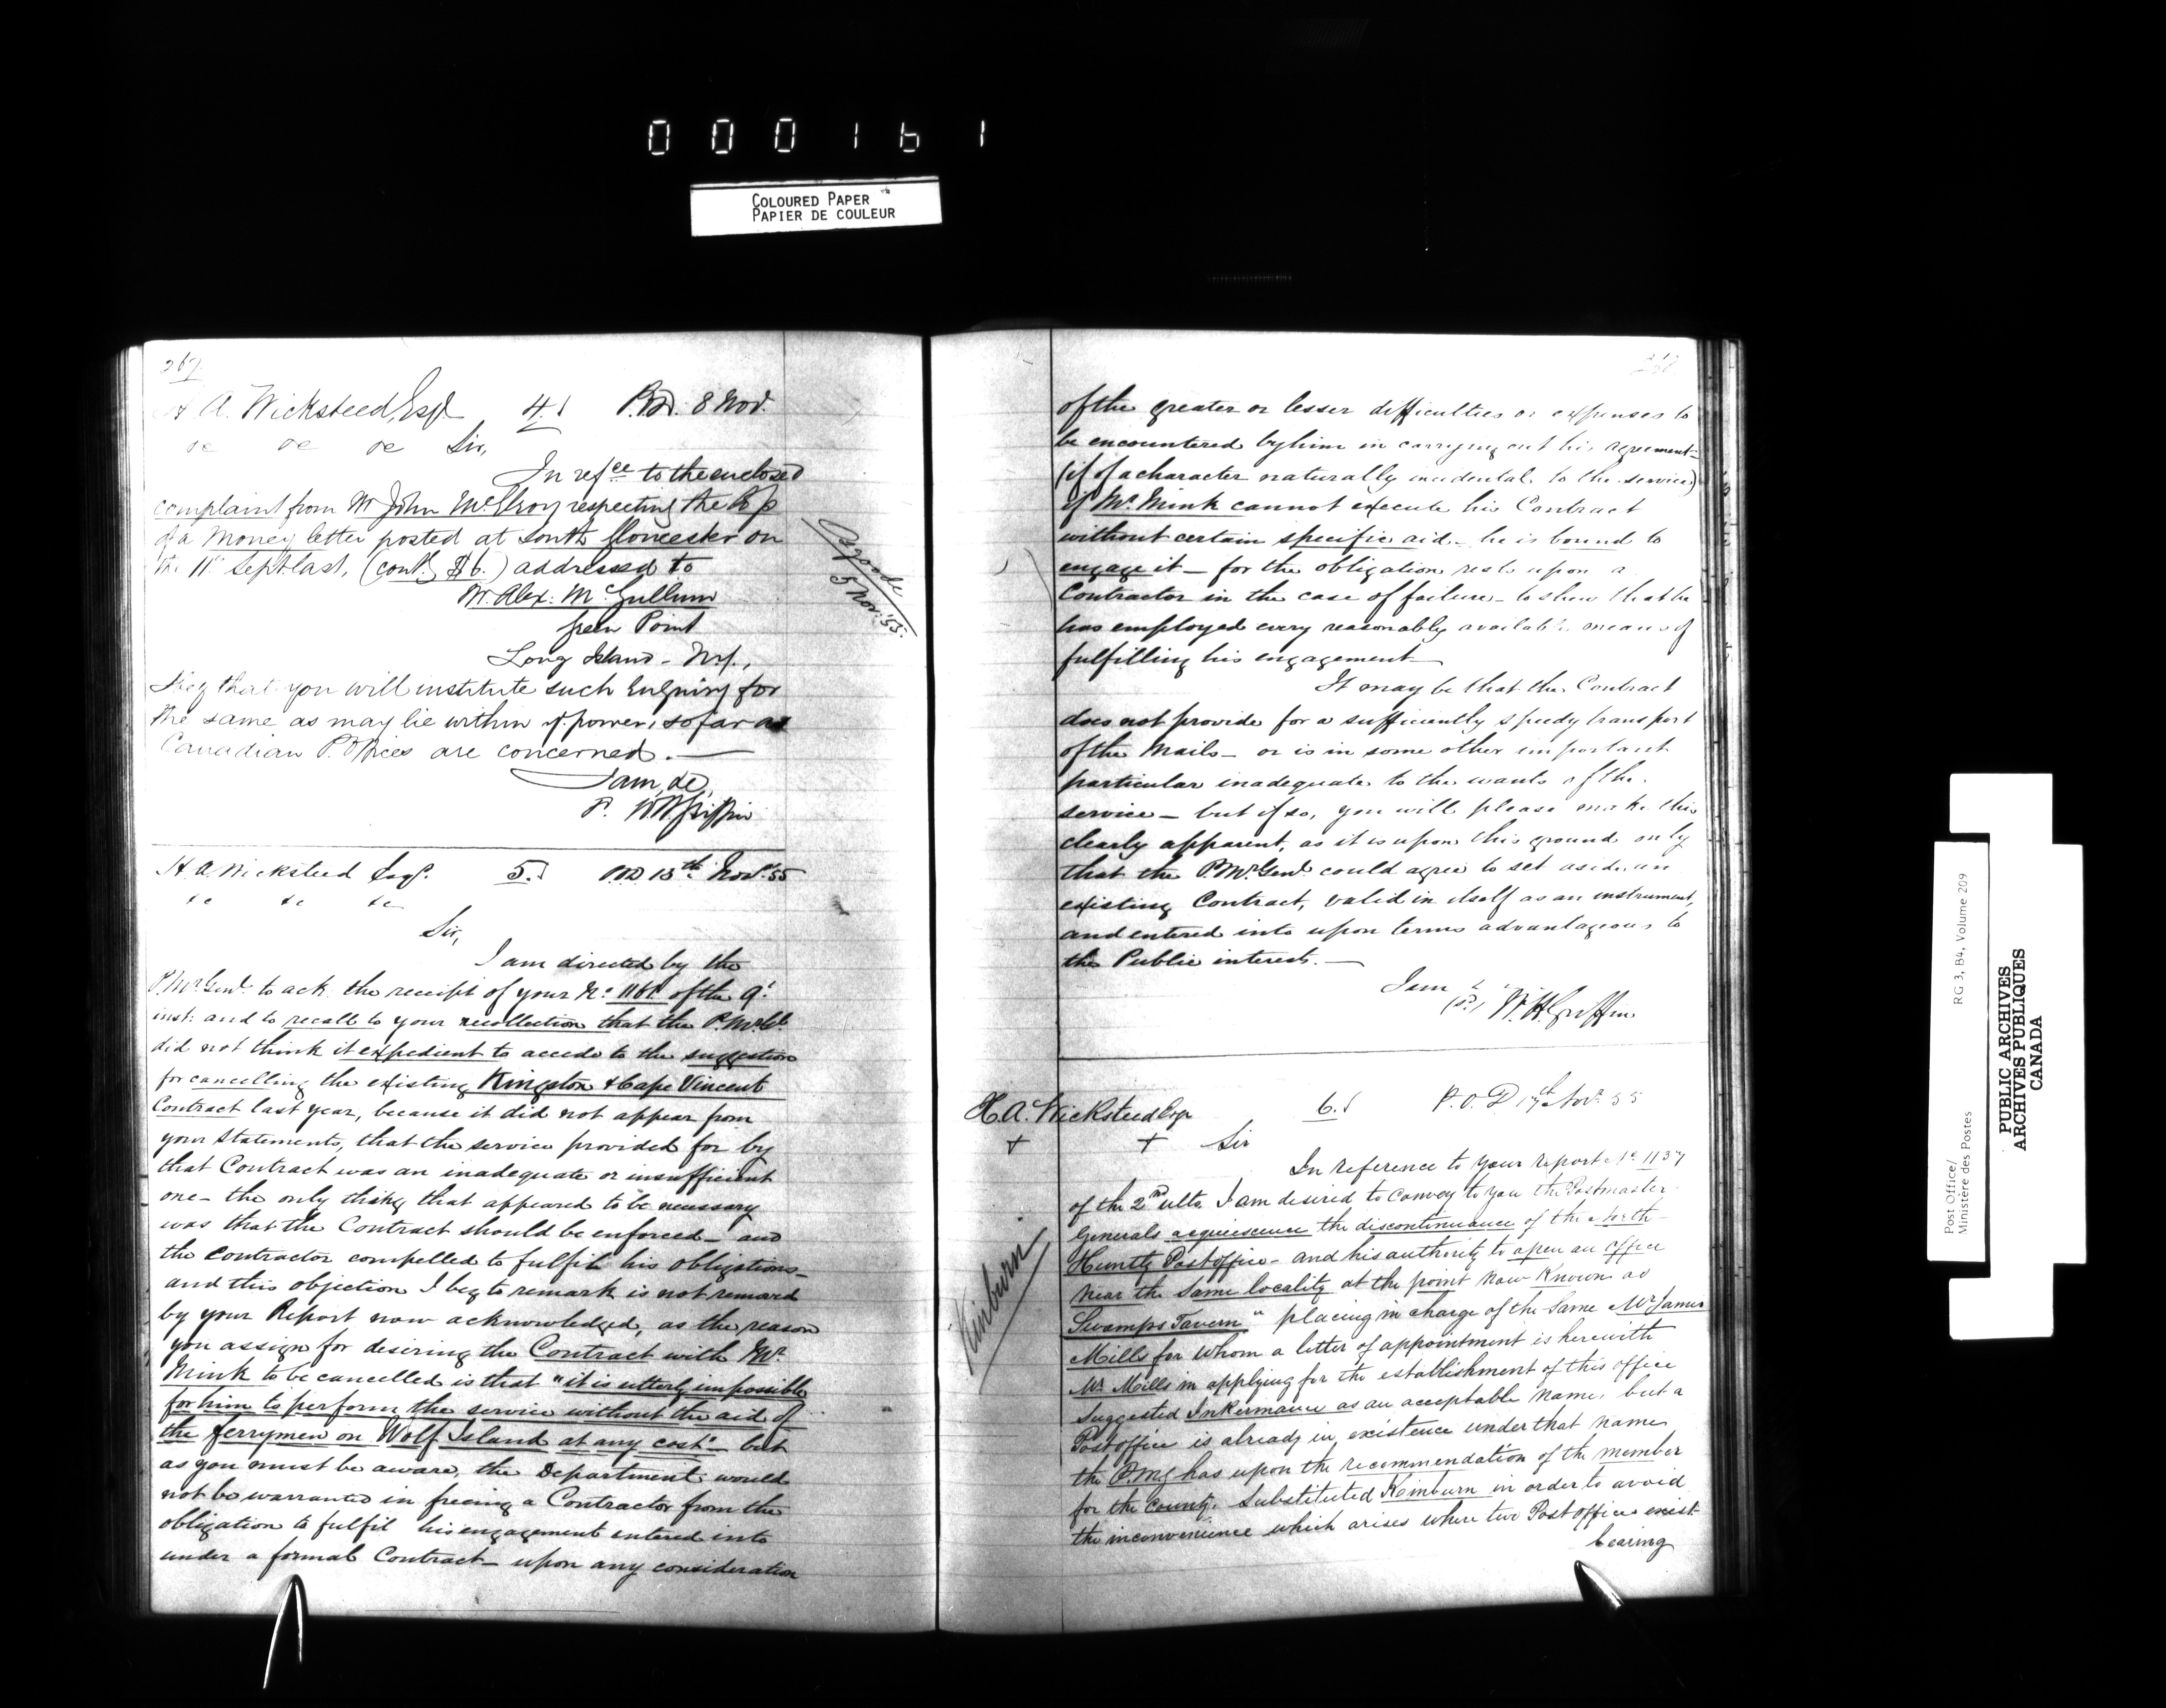 000161
COLOURED PAPER
PAPIER DE COULEUR
267
H A. Wicksteed, Esqr. 4. P.O.D. 8 Nov.
&c &c &c Sir,
In refce to the enclosed
complaint from Mr John McElroy respecting the
of a Money letter posted at South Gloucester on
the 11th Sept. last, (contg $6.) addressed to
Mr. Alex: McGullum
Green Point
Long Island - N.Y.,
I beg that you will institute such Enquiry for
the same as may lie within yr. power, so far as
Canadian P. Offices are concerned. —
I am, &c,
W.H. Griffin
Osgoode
5 Nov: 55.
H A Wicksteed Esqr. 5. POD 13th Novr. 55
&c &c &c
Sir,
I am directed by the
P. Mr. Genl. to ack. the receipt of your No. of the 9th
inst: and to recall to your recollection that the P.Mr.Gl.
did not think it expedient to accede to the suggestion
for cancelling the existing Kingston & Cape Vincent
Contract last year, because it did not appear from
your Statements, that the service provided for by
that Contract was an inadequate or insufficient
one – the only thing that appeared to be necessary
was that the Contract should be enforced – and
the Contractor compelled to fulfil his obligations –
and this objection I beg to remark is not removed
by your Report now acknowledged, as the reason
you assign for desiring the Contract with Mr.
Mink to be cancelled is that "it is utterly impossible
for him to perform the service without the aid of
the ferrymen on Wolf Island at any cost" – but
as you must be aware, the Department would
not be warranted in freeing a Contractor from the
obligation to fulfil his engagement entered into
under a formal Contract – upon any consideration
of the greater or lesser difficulties or expenses to
be encountered by him in carrying out his agreement –
(if of a character naturally incidental to the service)
if Mr. Mink cannot execute his Contract
without certain specific aid – he is bound to
engage it – for the obligation rests upon a
Contractor in the case of failure – to show that he
has employed every reasonably available means of
fulfilling his engagement —
It may be that the Contract
does not provide for a sufficiently speedy transport
of the Mails – or is in some other important
particular inadequate to the wants of the
service – but if so, you will please make this
clearly apparent, as it is upon this ground only
that the P.Mr.Genl. could agree to set aside an
existing Contract, valid in itself as an instrument,
and entered into upon terms advantageous to
the Public interests. —
I am &c
W. H. Griffin
H. A. Wicksteed Esqr 6. P.O.D 17th Novr. 55
+ + Sir
In reference to your report No 1137
of the 2nd ulto. I am desired to convey to you the Postmaster
Generals acquiescence the discontinuance of the North
Huntly Post office – and his authority to open an office
near the same locality at the point now known as
Swamps Tavern" placing in charge of the same Mr. James
Mills for whom a letter of appointment is herewith
Mr. Mills in applying for the establishment of this office
suggested Inkermann as an acceptable name, but a
Post office is already in existence under that name
the P.M.G. has upon the recommendation of the member
for the County, substituted Kinburn in order to avoid
the inconvenience which arises where two Post offices exist
bearing
Kinburn
Post Office/
Ministère des Postes
RG 3, B4, Volume 209
PUBLIC ARCHIVES
ARCHIVES PUBLIQUES
CANADA